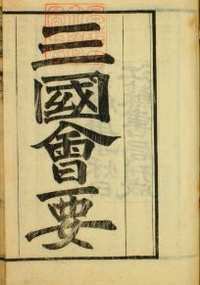 三國會要